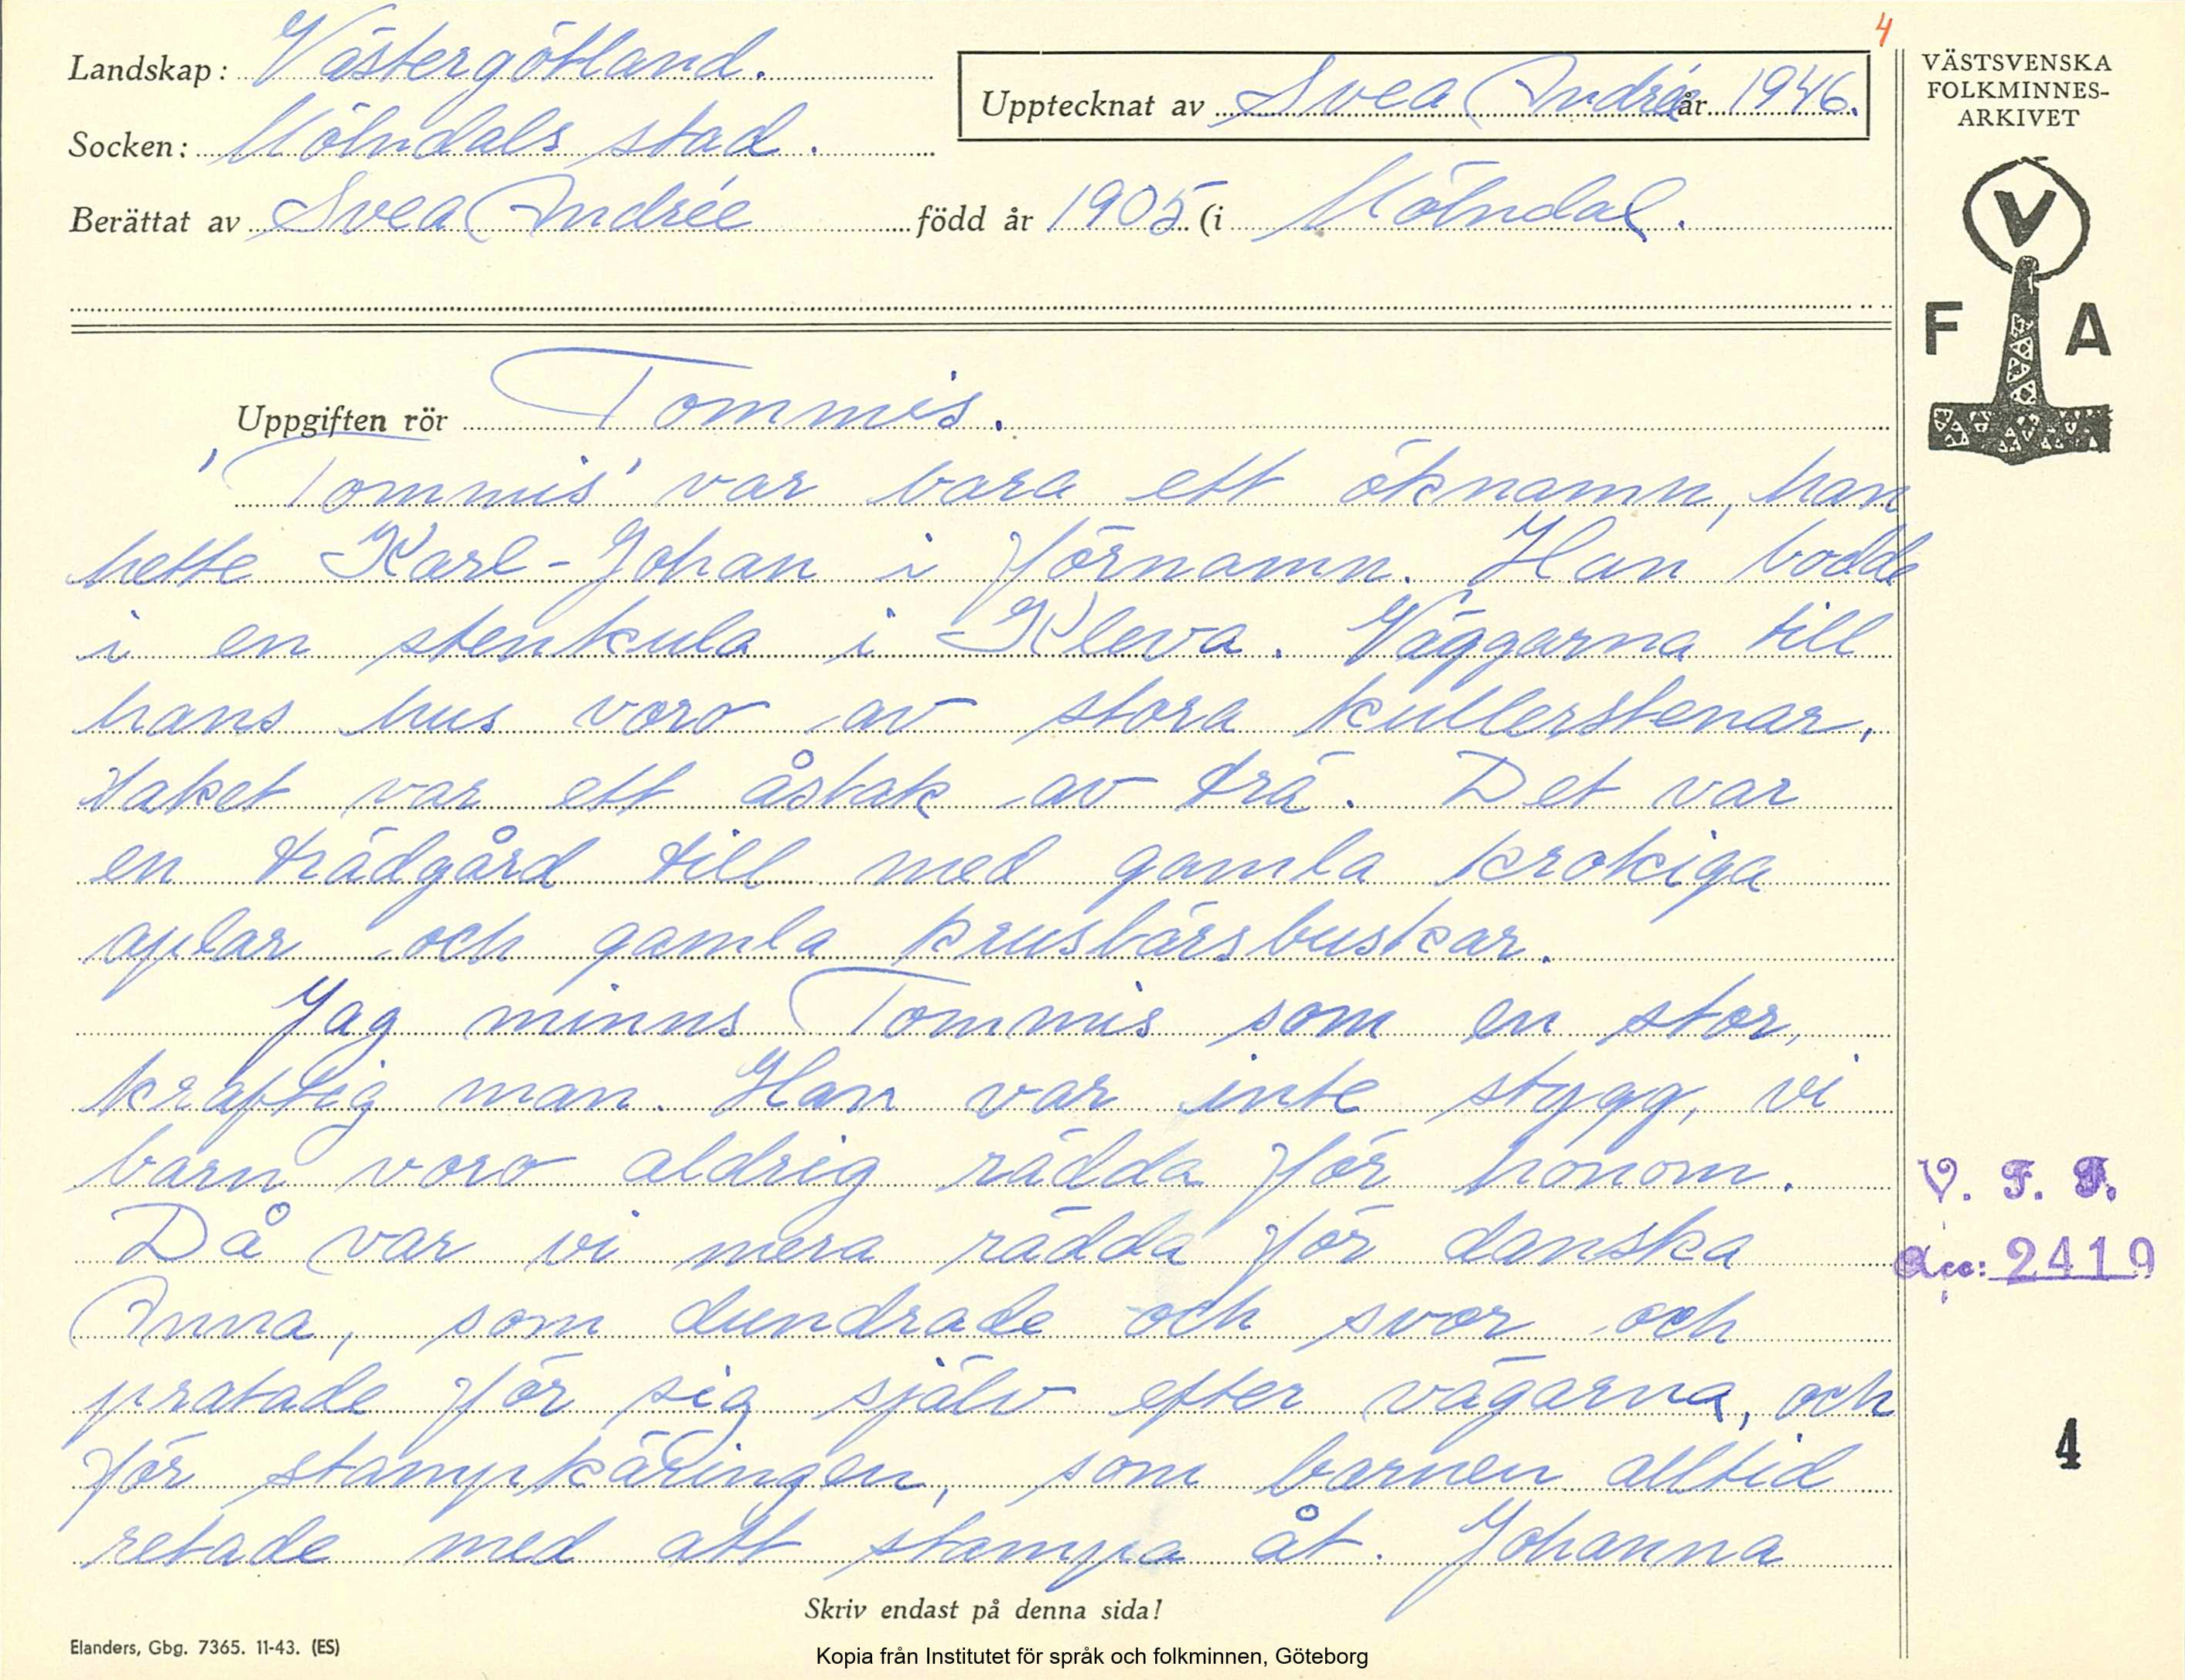 4
Landskap: Västergötland.
Upptecknat av Svea Andrée år 1946.
Socken: Mölndals stad.
Berättat av Svea Andrée född år 1905 (i Mölndal.
VÄSTSVENSKA
FOLKMINNES-
ARKIVET
V
F A
Uppgiften rör Tommis.
'Tommis' var bara ett öknamn, han
hette Karl-Johan i förnamn. Han bodde
i en stenkula i Kleva. Väggarna till
hans hus voro av stora kullerstenar,
taket var ett åstak av trä. Det var
en trädgård till med gamla krokiga
aplar och gamla krusbärsbuskar.
Jag minns Tommis som en stor,
kraftig man. Han var inte stygg, vi
barn voro aldrig rädda för honom.
Då var vi mera rädda för danska
Anna, som dundrade och svor och
pratade för sig själv efter vägarna, och
för stampkäringen, som barnen alltid
retade med att stampa åt. Johanna
V. F. F.
Acc: 2419
4
Skriv endast på denna sida!
Elanders, Gbg. 7365. 11-43. (ES)
Kopia från Institutet för språk och folkminnen, Göteborg